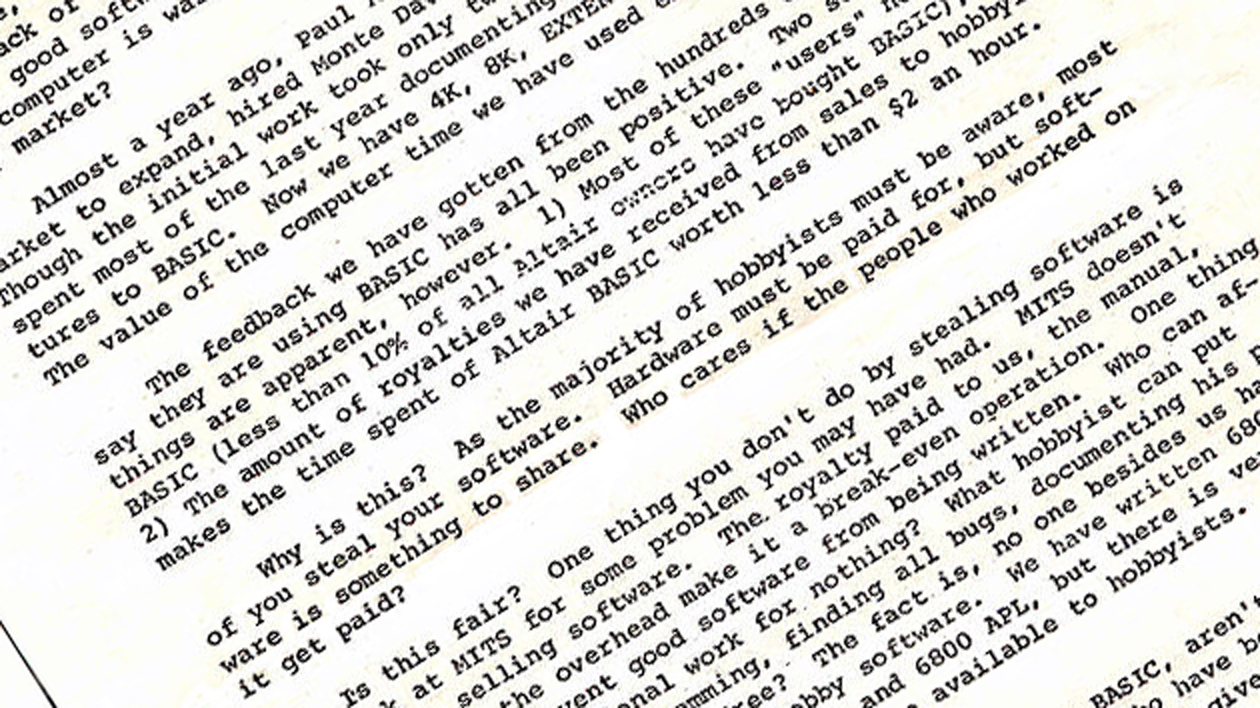 good softw
computer is wai
market?
Almost a year ago, Paul
arket to expand, hired Monte Dav
Though the initial work took only tw
spent most of the last year documenting
tures to BASIC. Now we have 4K, 8K, EXTEN
The value of the computer time we have used
The feedback we have gotten from the hundreds
say they are using BASIC has all been positive. Two
things are apparent, however. 1) Most of these "users"
BASIC (less than 10% of all Altair owners have bought BASIC),
2) The amount of royalties we have received from sales to hobbyi
makes the time spent of Altair BASIC worth less than $2 an hour.
Why is this? As the majority of hobbyists must be aware, most
of you steal your software. Hardware must be paid for, but soft-
ware is something to share. Who cares if the people who worked on
it get paid?
Is this fair? One thing you don't do by stealing software is
k at MITS for some problem you may have had. MITS doesn't
selling software. The royalty paid to us, the manual,
the overhead make it a break-even operation. One thing
vent good software from being written. Who can af-
onal work for nothing? What hobbyist can put
mming, finding all bugs, documenting his p
ree? The fact is, no one besides us ha
obby software. We have written 680
and 6800 APL, but there is ve
available to hobbyists.
BASIC, aren't
ho have be
give